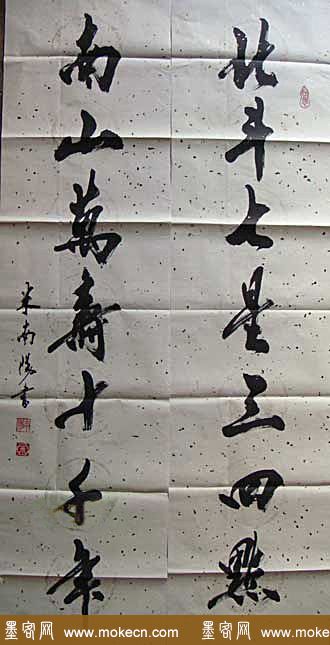 北斗七星三四點
南山萬壽十千年
米南陽書
墨客网 www.mokecn.com 墨客网 www.mokecn.com